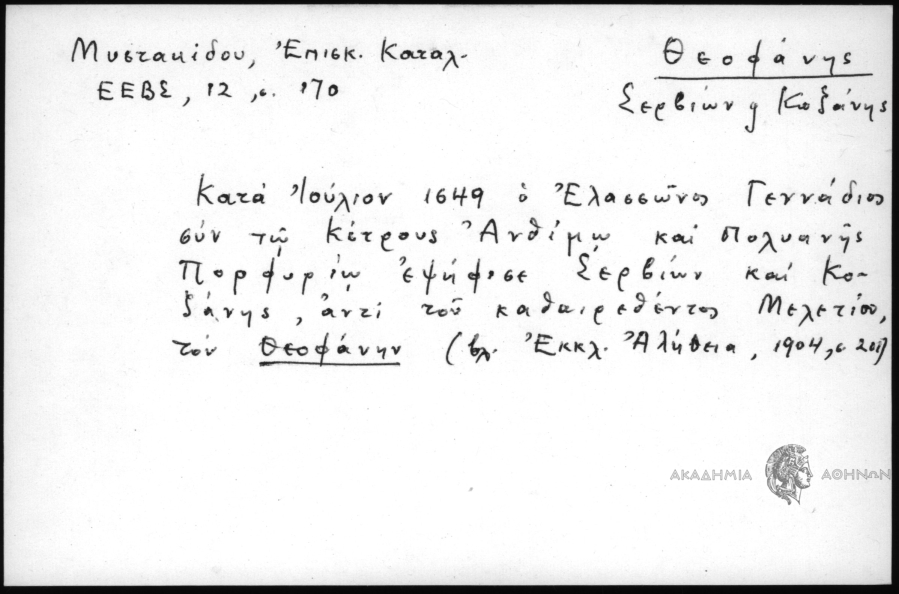 Μυστακίδου, Ἐπισκ. Καταλ.
ΕΕΒΣ, 12, σ. 170
Θεοφάνης
Σερβίων ἤ Κοζάνης
Κατά Ἰούλιον 1649 ὁ Ἐλασσῶνος Γεννάδιος
σύν τῷ Κίτρους Ἀνθίμῳ καί Πολυανῆς
Πορφυρίῳ ἐψήφισε Σερβίων καί Κο-
ζάνης, ἀντί τοῦ καθαιρεθέντος Μελετίου,
τόν Θεοφάνην (βλ. Ἐκκλ. Ἀλήθεια, 1904, σ. 201)
ΑΚΑΔΗΜΙΑ ΑΘΗΝΩΝ